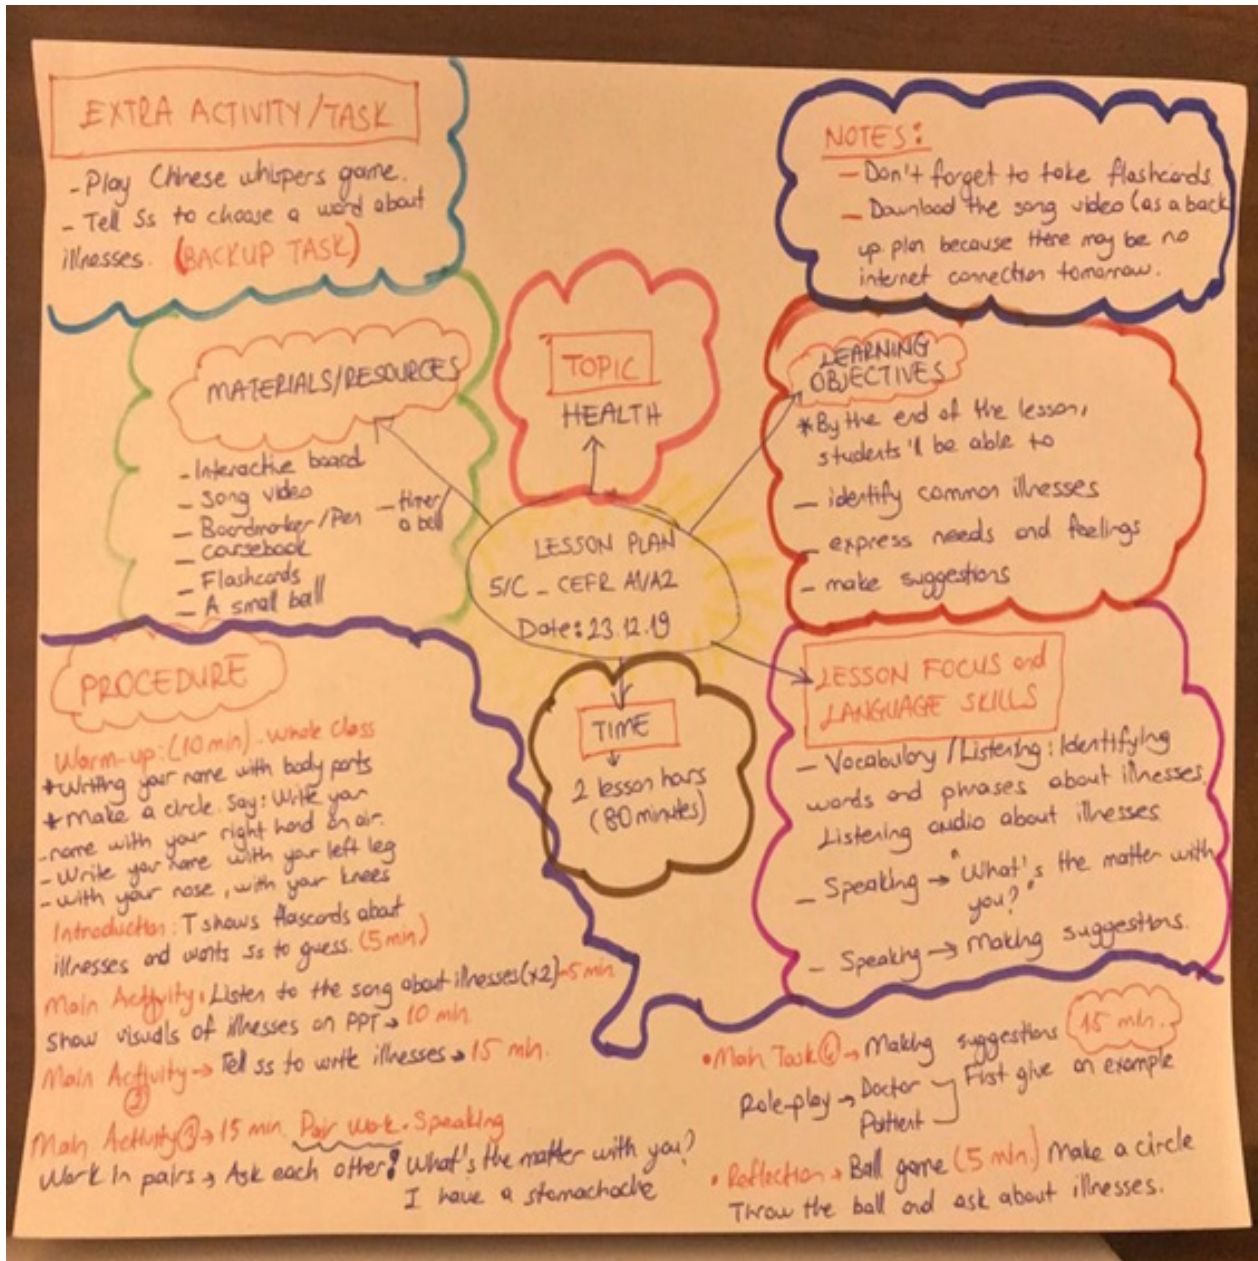 EXTRA ACTIVITY/TASK
- Play Chinese whispers game.
- Tell Ss to choose a word about
illnesses. (BACKUP TASK)
NOTES:
- Don't forget to take flashcards
- Download the song video (as a back
up plan because there may be no
internet connection tomorrow.
MATERIALS/RESOURCES
- Interactive board
- Song video
- Boardmarker/Pen
- Coursebook
- Flashcards
- A small ball
- timer
a bell
TOPIC
HEALTH
LEARNING
OBJECTIVES
* By the end of the lesson,
students'll be able to
- identify common illnesses
- express needs and feelings
- make suggestions
LESSON PLAN
5/C - CEFR A1/A2
Date: 23.12.19
TIME
2 lesson hours
(80 minutes)
LESSON FOCUS and
LANGUAGE SKILLS
- Vocabulary / Listening: Identifying
words and phrases about illnesses.
Listening audio about illnesses
- Speaking → "What's the matter with
you?"
- Speaking → Making suggestions.
PROCEDURE
Warm-up: (10 min) - Whole Class
* Writing your name with body parts
* Make a circle. Say: Write your
- name with your right hand on air.
- Write your name with your left leg
- with your nose, with your knees
Introduction: T shows flascards about
illnesses and wants ss to guess. (5 min)
Main Activity: Listen to the song about illnesses (x2) → 5 min.
Show visuals of illnesses on PPT → 10 min.
Main Activity → Tell ss to write illnesses → 15 min.
②
Main Activity ③ → 15 min. Pair Work. Speaking
Work in pairs → Ask each other: What's the matter with you?
I have a stomachache
• Main Task ④ → Making suggestions 15 min.
Role-play → Doctor
Patient
First give an example
• Reflection → Ball game (5 min.) Make a circle
Throw the ball and ask about illnesses.